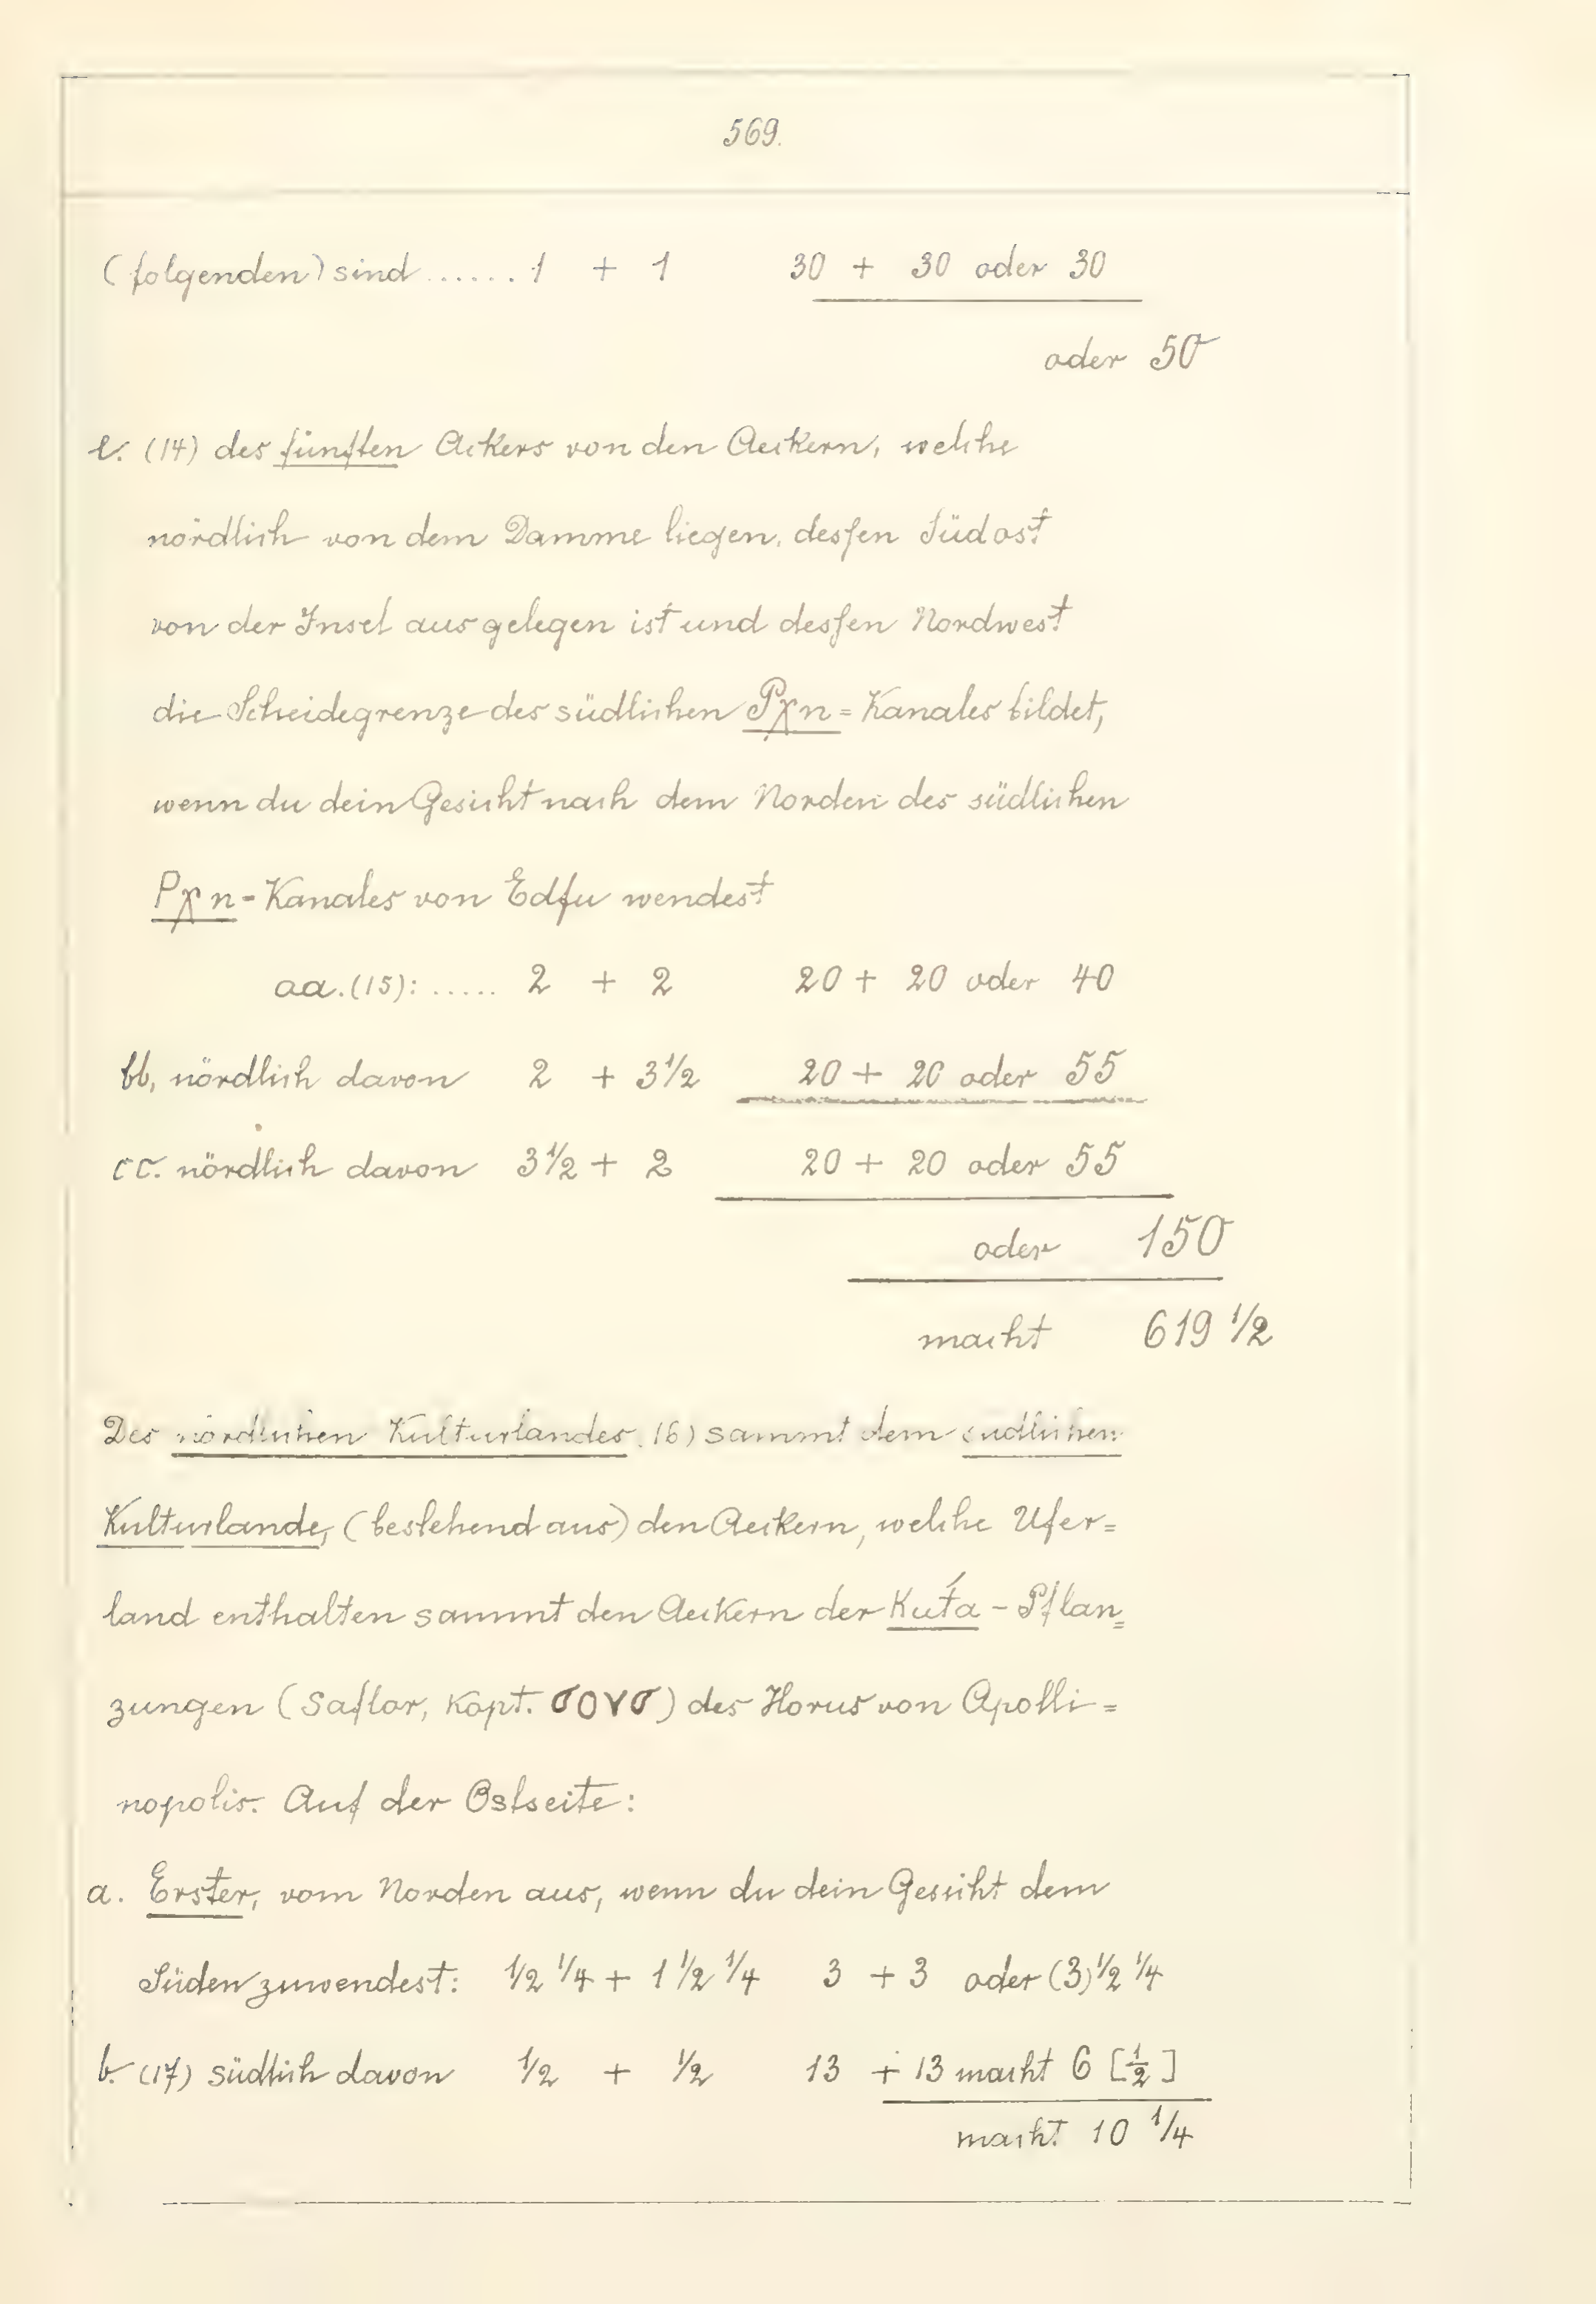 569.
(folgenden) sind ...... 1 + 1 30 + 30 oder 30
oder 50
e. (14) des fünften Ackers von den Aeckern, welche
nördlich von dem Damme liegen, dessen Südost
von der Insel aus gelegen ist und dessen Nordwest
die Scheidegrenze des südlichen Pχn = Kanales bildet,
wenn du dein Gesicht nach dem Norden des südlichen
Pχn - Kanales von Edfu wendest
aa. (15): ..... 2 + 2 20 + 20 oder 40
bb, nördlich davon 2 + 3 1/2 20 + 20 oder 55
cc. nördlich davon 3 1/2 + 2 20 + 20 oder 55
oder 150
macht 619 1/2
Des nördlichen Kulturlandes (16) sammt dem südlichen
Kulturlande, (bestehend aus) den Aeckern, welche Ufer=
land enthalten sammt den Aeckern der Kut́a - Pflan=
zungen (Saflor, kopt. ϭⲟⲩϭ) des Horus von Apolli=
nopolis. Auf der Ostseite:
a. Erster, vom Norden aus, wenn du dein Gesicht dem
Süden zuwendest: 1/2 1/4 + 1 1/2 1/4 3 + 3 oder (3) 1/2 1/4
b. (17) südlich davon 1/2 + 1/2 13 + 13 macht 6 [1/2]
macht 10 1/4